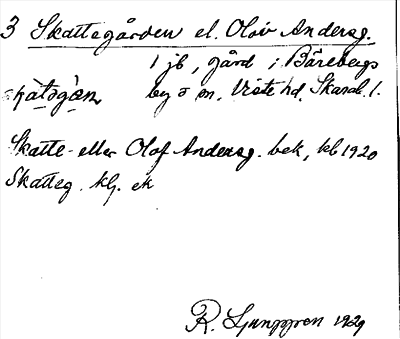 3 Skattegården el. Olov Andersg.
1 jb, gård i Bärebergs
skatogån by o sn. Viste hd. Skarab. l.
Skatte- eller Olof Andersg. bek, kb 1920
Skatteg. klg. ek
R. Ljunggren 1929